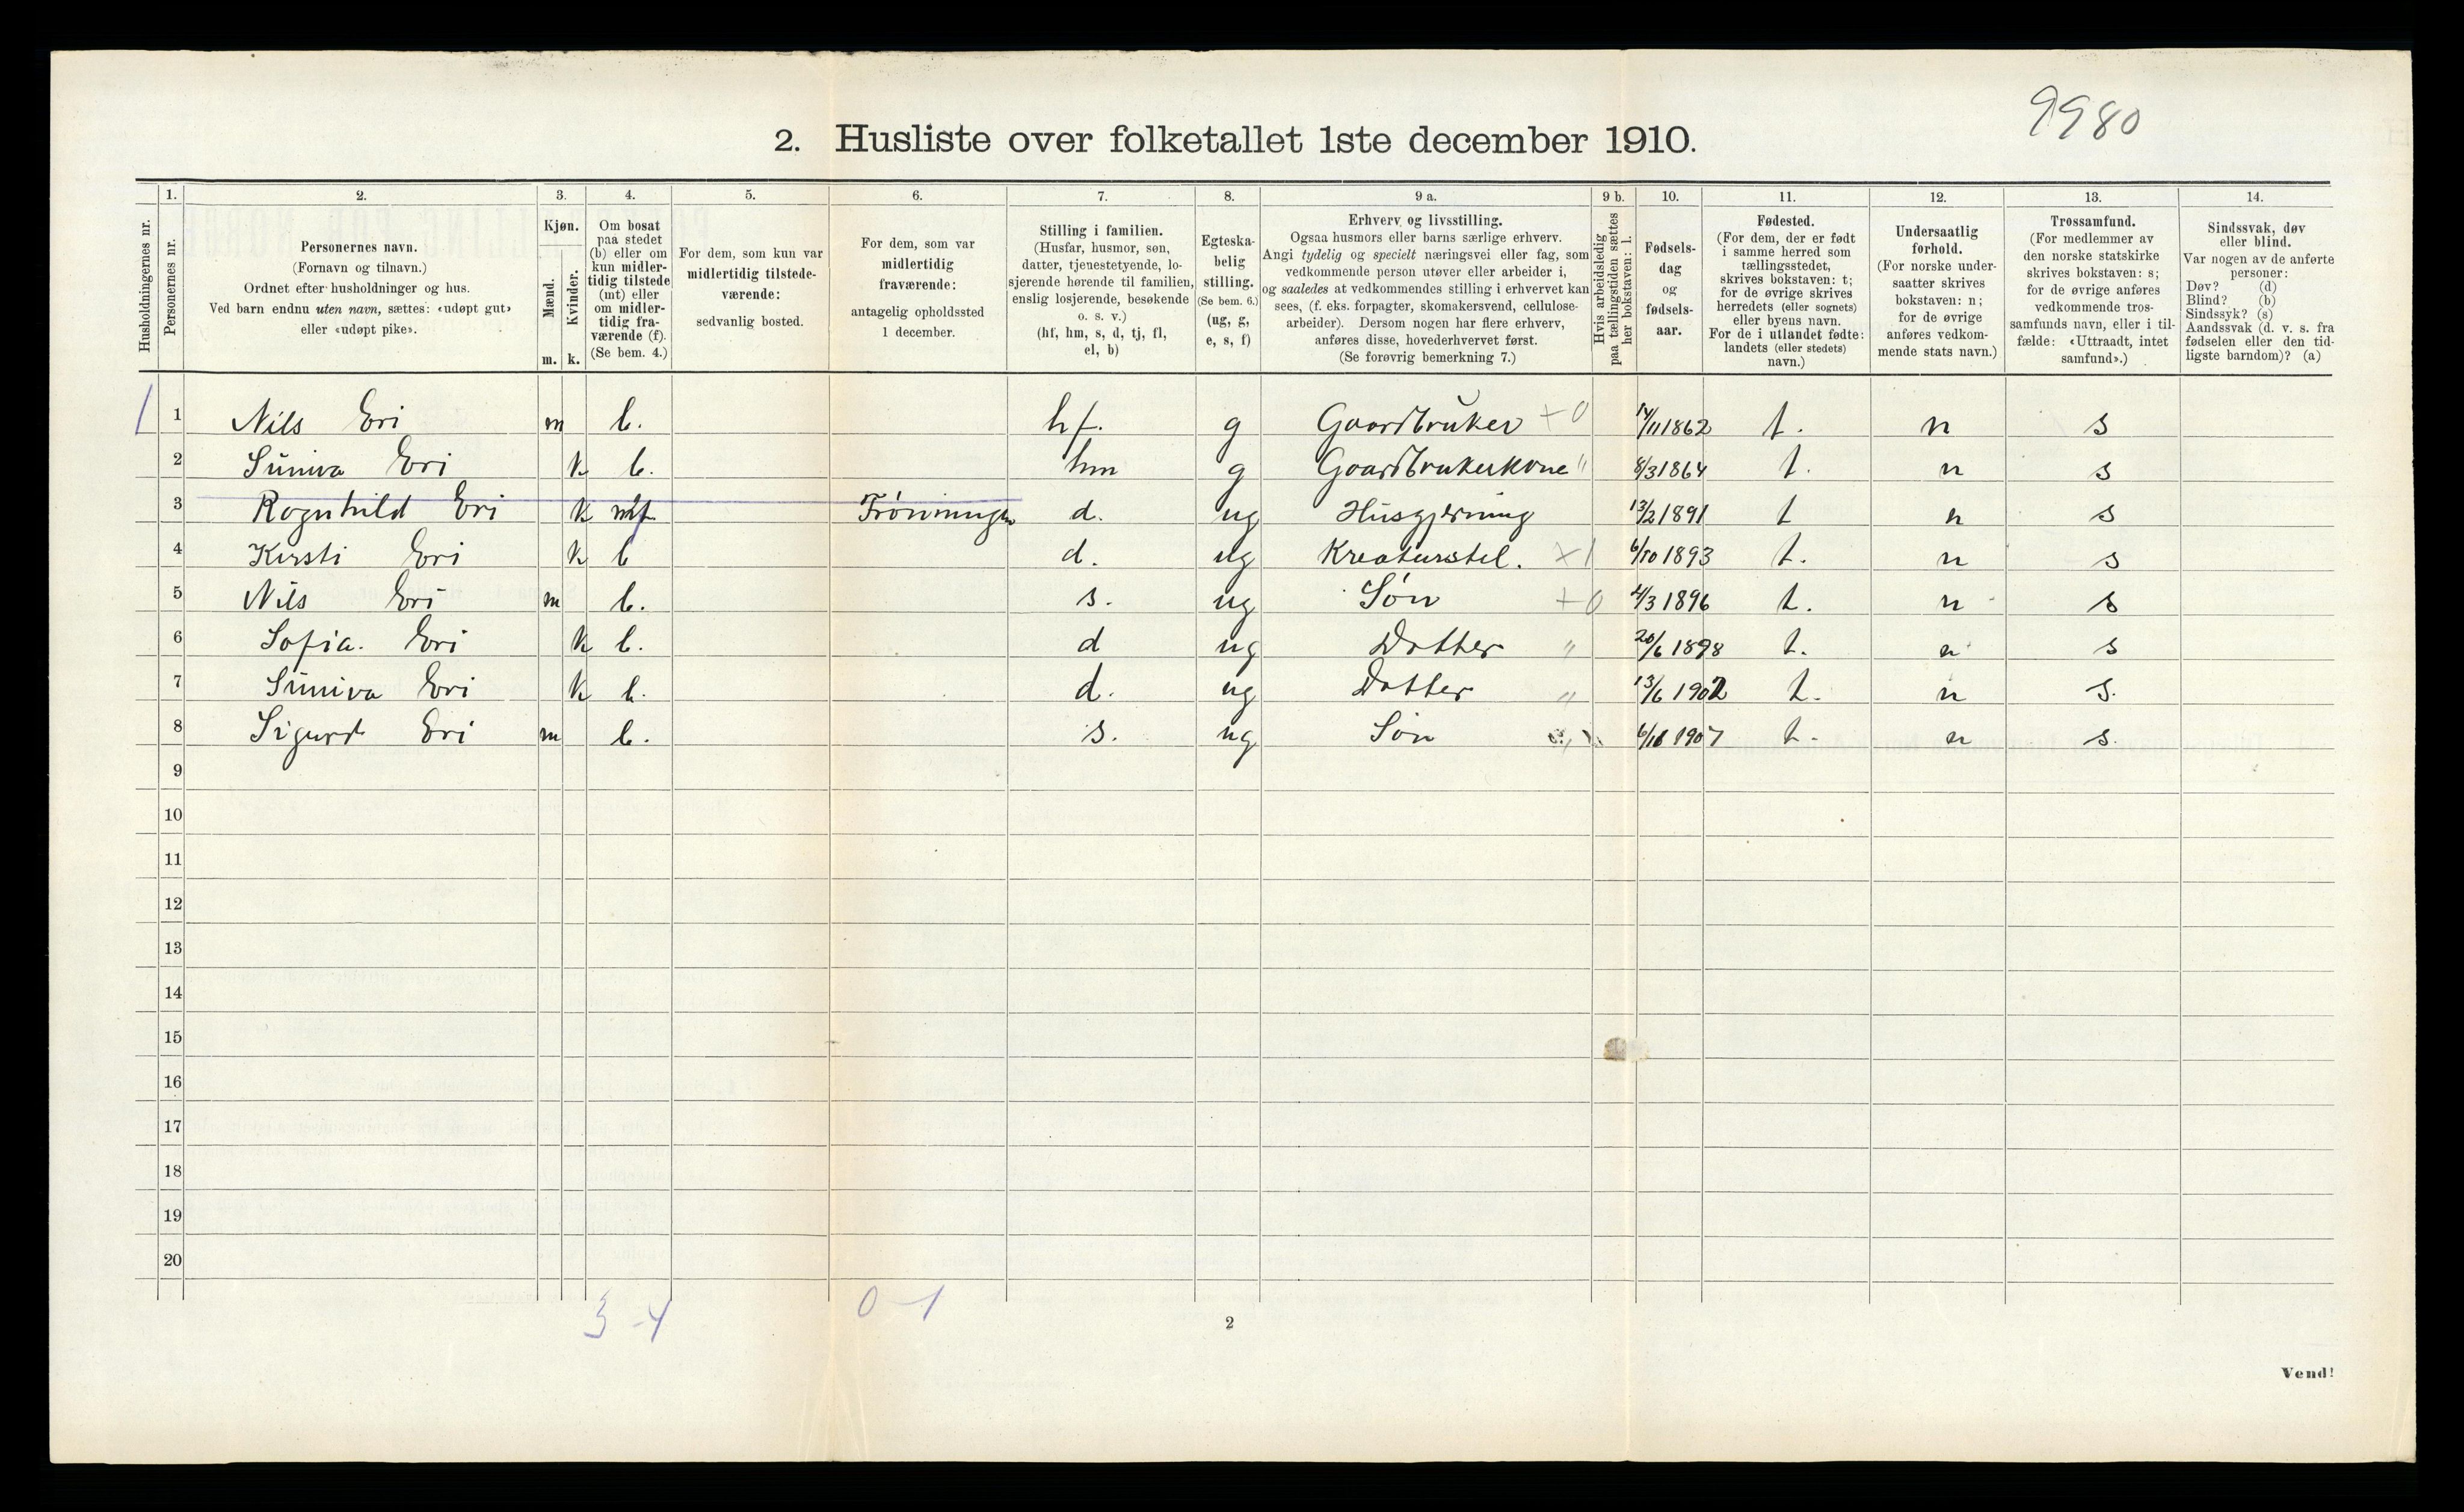 9980
2. Husliste over folketallet 1ste december 1910.
1. 2. 3. 4. 5. 6. 7. 8. 9 a. 9 b. 10. 11. 12. 13. 14.
Husholdningernes nr.
Personernes nr.
Personernes navn.
(Fornavn og tilnavn.)
Ordnet efter husholdninger og hus.
Ved barn endnu uten navn, sættes: «udøpt gut»
eller «udøpt pike».
Kjøn.
Mænd.
Kvinder.
m. k.
Om bosat
paa stedet
(b) eller om
kun midler-
tidig tilstede
(mt) eller
om midler-
tidig fra-
værende (f).
(Se bem. 4.)
For dem, som kun var
midlertidig tilstede-
værende:
sedvanlig bosted.
For dem, som var
midlertidig
fraværende:
antagelig opholdssted
1 december.
Stilling i familien.
(Husfar, husmor, søn,
datter, tjenestetyende, lo-
sjerende hørende til familien,
enslig losjerende, besøkende
o. s. v.)
(hf, hm, s, d, tj, fl,
el, b)
Egteska-
belig
stilling.
(Se bem. 6.)
(ug, g,
e, s, f)
Erhverv og livsstilling.
Ogsaa husmors eller barns særlige erhverv.
Angi tydelig og specielt næringsvei eller fag, som
vedkommende person utøver eller arbeider i,
og saaledes at vedkommendes stilling i erhvervet kan
sees, (f. eks. forpagter, skomakersvend, cellulose-
arbeider). Dersom nogen har flere erhverv,
anføres disse, hovederhvervet først.
(Se forøvrig bemerkning 7.)
Hvis arbeidsledig
paa tællingstiden sættes
her bokstaven: l.
Fødsels-
dag
og
fødsels-
aar.
Fødested.
(For dem, der er født
i samme herred som
tællingsstedet,
skrives bokstaven: t;
for de øvrige skrives
herredets (eller sognets)
eller byens navn.
For de i utlandet fødte:
landets (eller stedets)
navn.)
Undersaatlig
forhold.
(For norske under-
saatter skrives
bokstaven: n;
for de øvrige
anføres vedkom-
mende stats navn.)
Trossamfund.
(For medlemmer av
den norske statskirke
skrives bokstaven: s;
for de øvrige anføres
vedkommende tros-
samfunds navn, eller i til-
fælde: «Uttraadt, intet
samfund».)
Sindssvak, døv
eller blind.
Var nogen av de anførte
personer:
Døv? (d)
Blind? (b)
Sindssyk? (s)
Aandssvak (d. v. s. fra
fødselen eller den tid-
ligste barndom)? (a)
1 1 Nils Eri m b. hf. g Gaardbruker +0 14/11 1862 t. n s
2 Süniva Eri k b. hm g Gaardbrukerkone " 8/3 1864 t. n s
3 Rognhild Eri k f Frønningen d. ug Husgjerning 13/2 1891 t n s
4 Kirsti Eri k b d. ug Kreaturstel. +1 6/10 1893 t. n s
5 Nils Eri m b. s. ug Søn +0 4/3 1896 t. n s
6 Sofia. Eri k b. d ug Datter " 20/6 1898 t. n s
7 Süniva Eri k b. d. ug Datter " 13/6 1902 t. n s.
8 Sigurd Eri m b. s. ug Søn 1907 t. n s.
9
10
11
12
13
14
15
16
17
18
19
20
3 - 4 0 - 1
2
Vend!